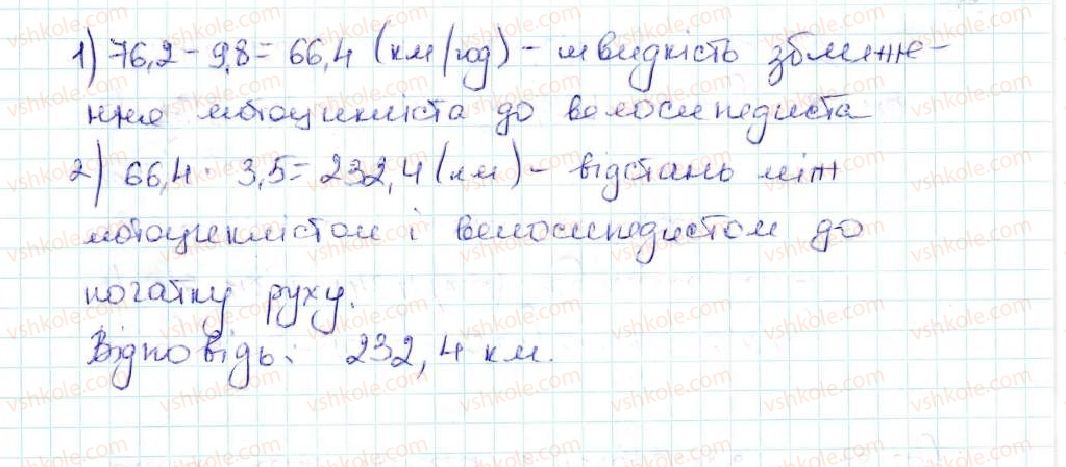 1) 76,2 - 9,8 = 66,4 (км/год) - швидкість зближе-
ння мотоцикліста до велосипедиста
2) 66,4 · 3,5 = 232,4 (км) - відстань між
мотоциклістом і велосипедистом до
початку руху.
Відповідь: 232,4 км.